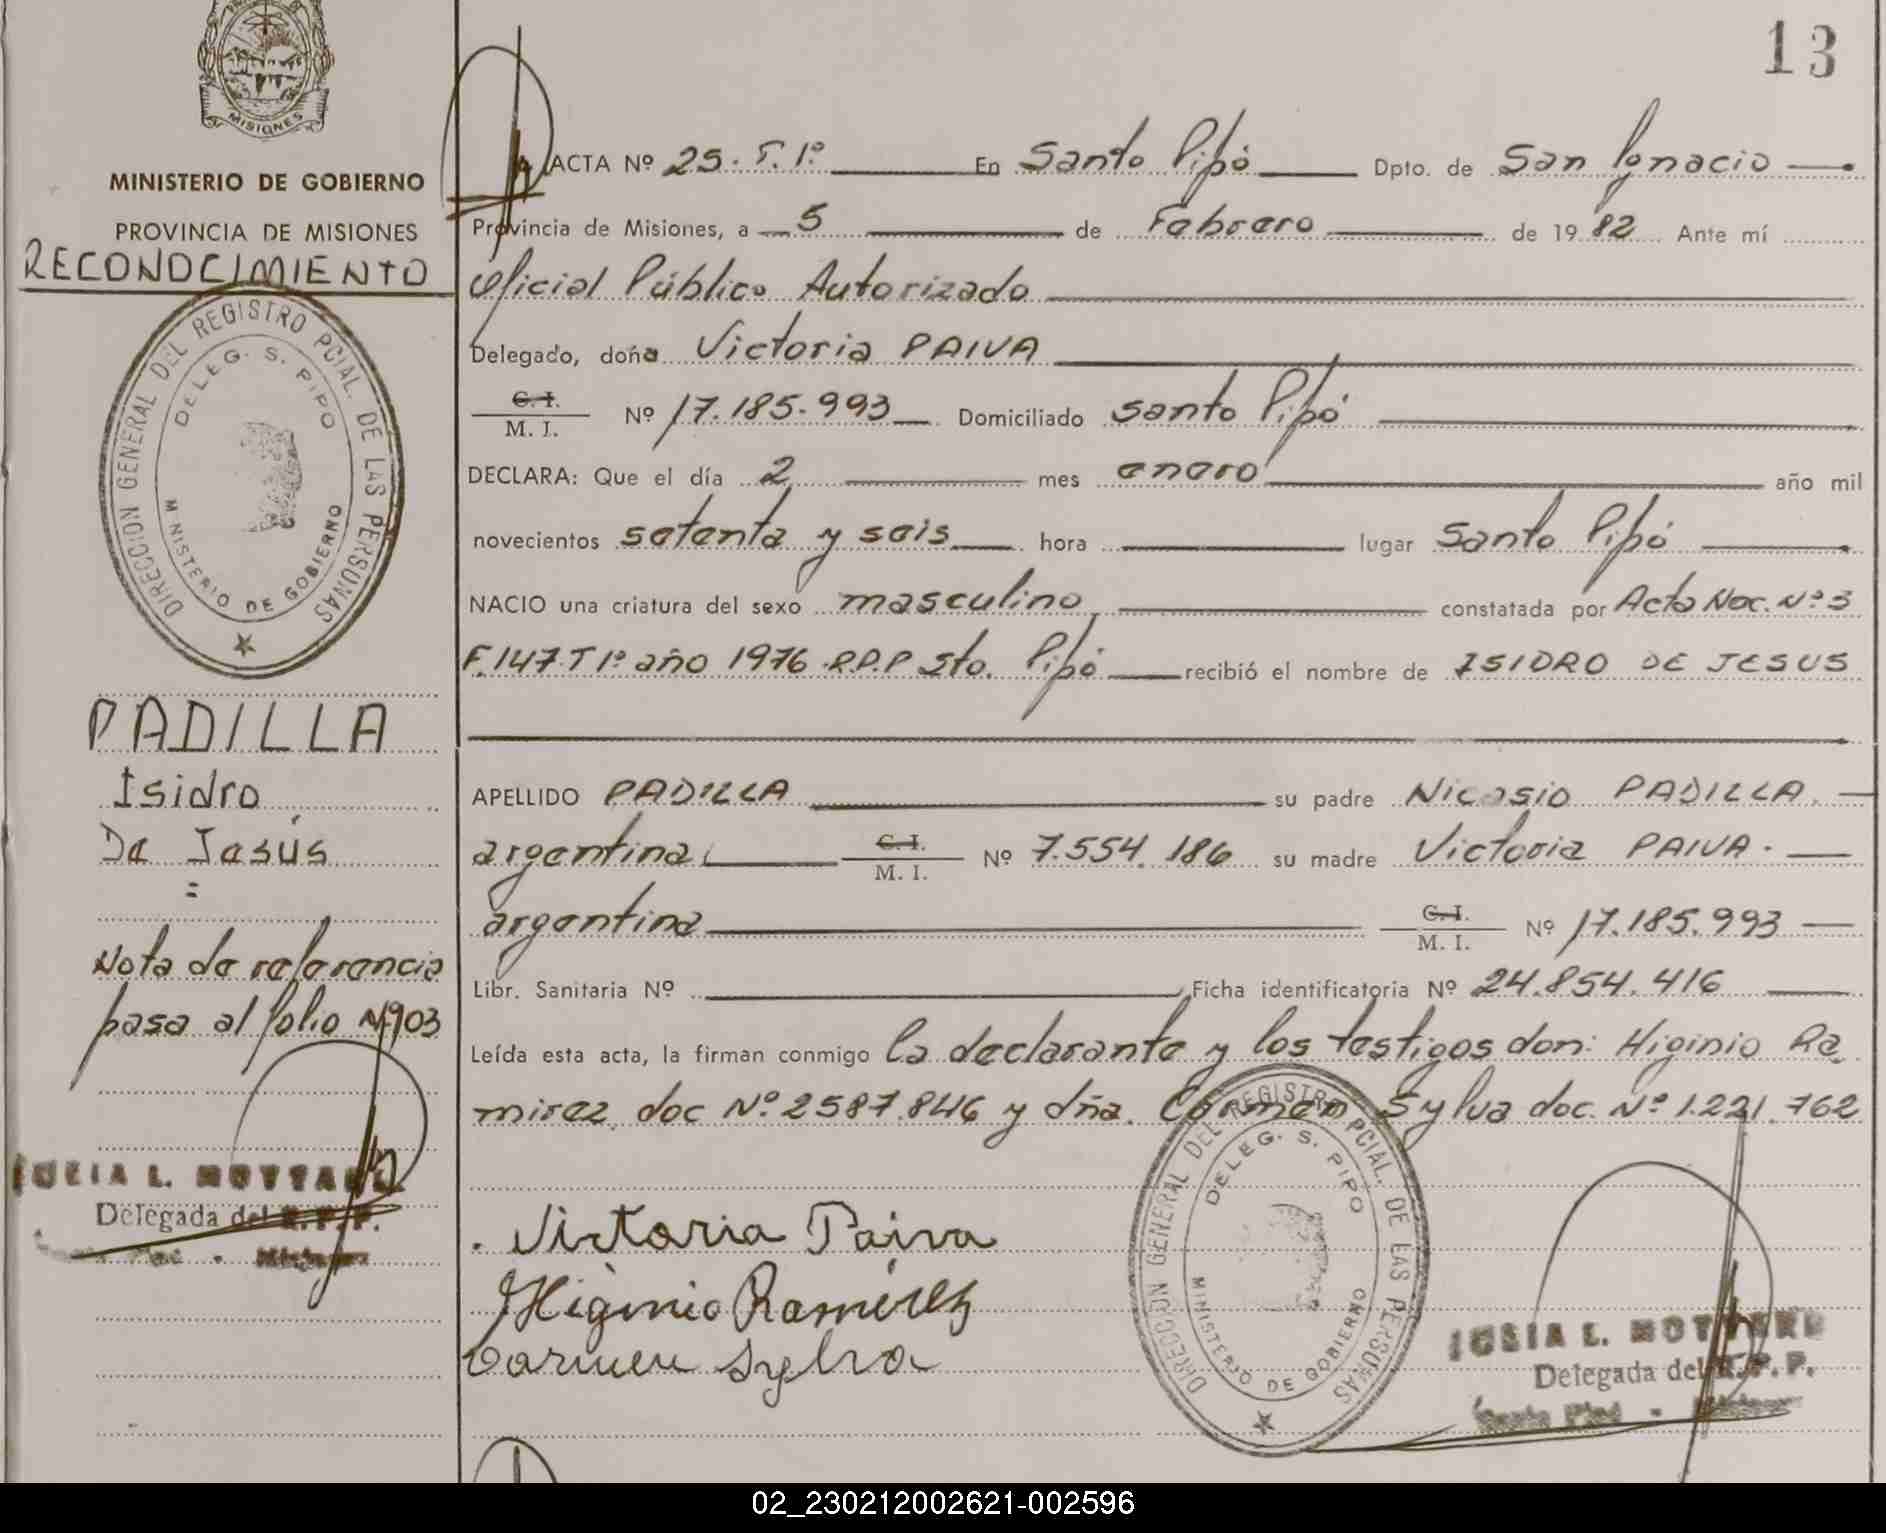 13
MISIONES
MINISTERIO DE GOBIERNO
PROVINCIA DE MISIONES
RECONOCIMIENTO
DIRECCION GENERAL DEL REGISTRO PCIAL. DE LAS PERSONAS
DELEG. S. PIPO
MINISTERIO DE GOBIERNO
PADILLA
Isidro
De Jesús
=
Nota de referencia
pasa al folio Nº 903
L. MOTTARD
Delegada del R.P.P.
Misiones
ACTA Nº 25. T. 1º En Santo Pipó Dpto. de San Ignacio
Provincia de Misiones, a 5 de Febrero de 1982 Ante mí
Oficial Público Autorizado
Delegado, doña Victoria PAIVA
C. I.
M. I. Nº 17.185.993 Domiciliado Santo Pipó
DECLARA: Que el día 2 mes enero año mil
novecientos setenta y seis hora lugar Santo Pipó
NACIO una criatura del sexo masculino constatada por Acta Nac. Nº 3
F. 147 T 1º año 1976 R.P.P Sto. Pipó recibió el nombre de ISIDRO DE JESUS
APELLIDO PADILLA su padre Nicasio PADILLA
argentina C. I.
M. I. Nº 7.554.186 su madre Victoria PAIVA.
argentina C. I.
M. I. Nº 17.185.993
Libr. Sanitaria Nº Ficha identificatoria Nº 24.854.416
Leída esta acta, la firman conmigo la declarante y los testigos don: Higinio Ra
mirez doc Nº 2587.846 y dña. Carmen Sylva doc. Nº 1.221.762
Victoria Paiva
Higinio Ramirez
Carmen Sylva
DIRECCION GENERAL DEL REGISTRO PCIAL. DE LAS PERSONAS
DELEG. S. PIPO
MINISTERIO DE GOBIERNO
L. MOTTARD
Delegada del R.P.P.
Santo Pipó - Misiones
02_230212002621-002596